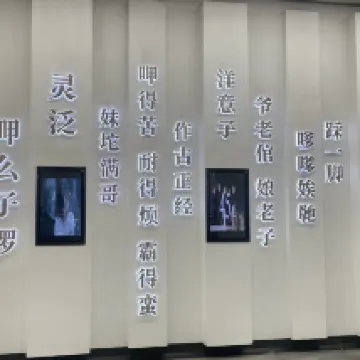 呷么子啰
灵泛
妹坨满哥
呷得苦 耐得烦 霸得蛮
作古正经
洋意子
爷老倌 娘老子
嗲嗲娭毑
踩一脚